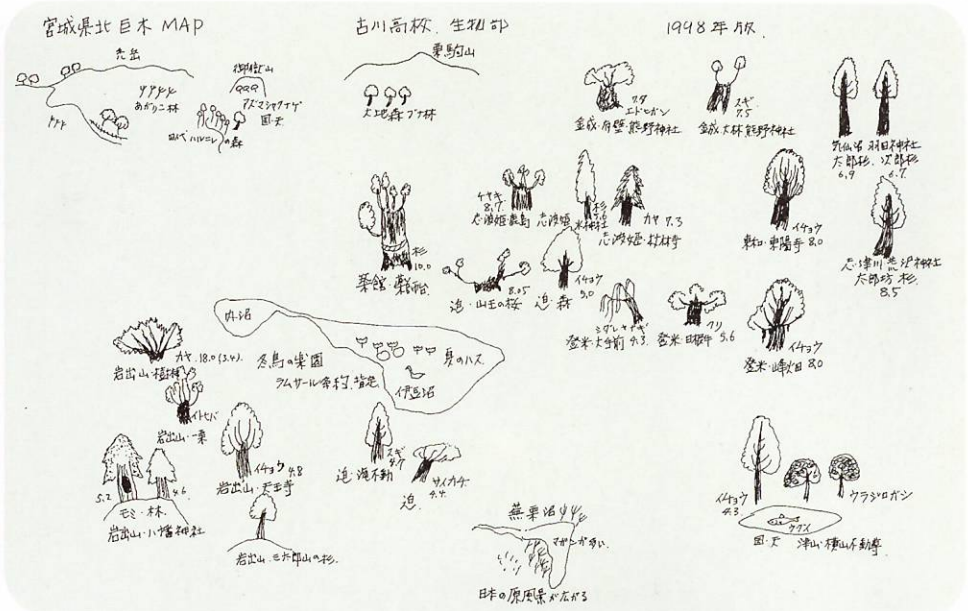 宮城県北巨木 MAP
古川高校. 生物部
1998年版.
禿岳
あがりこ林
御嶽山
アズマシャクナゲ
国・天
の森
栗駒山
大地森ブナ林
エドヒガン
金成・有壁・熊野神社
スギ
7.5
金成大林熊野神社
羽田神社
太郎杉. 次郎杉
6.9
6.7
ケヤキ
8.7
志波姫
杉
志波姫
カヤ 7.3
志波姫・
イチョウ
東和・東陽寺 8.0
志・津川 荒沢神社
太郎坊 杉.
8.5
杉
10.0
築館・薬師
8.05
迫・山王の桜
イチョウ
5.0
迫・森
シダレヤナギ
登米・大手前 4.3
クリ
登米・日根牛 5.6
イチョウ
登米・峰畑 8.0
内沼
冬鳥の楽園
ラムサール条約. 指定
夏のハス
伊豆沼
カヤ. 18.0 (3.4).
岩出山・
イトヒバ
岩出山・一栗
5.2
4.6
モミ・林
岩出山・八幡神社
イチョウ 4.8
岩出山・天王寺
岩出山・三九郎山の杉.
スギ
4.7
迫・滝不動
サイカチ
4.4
迫.
蕪栗沼
マガンが多い
日本の原風景が広がる
イチョウ
4.3
ウラジロガシ
ウグイ
国・天
津山・横山不動尊